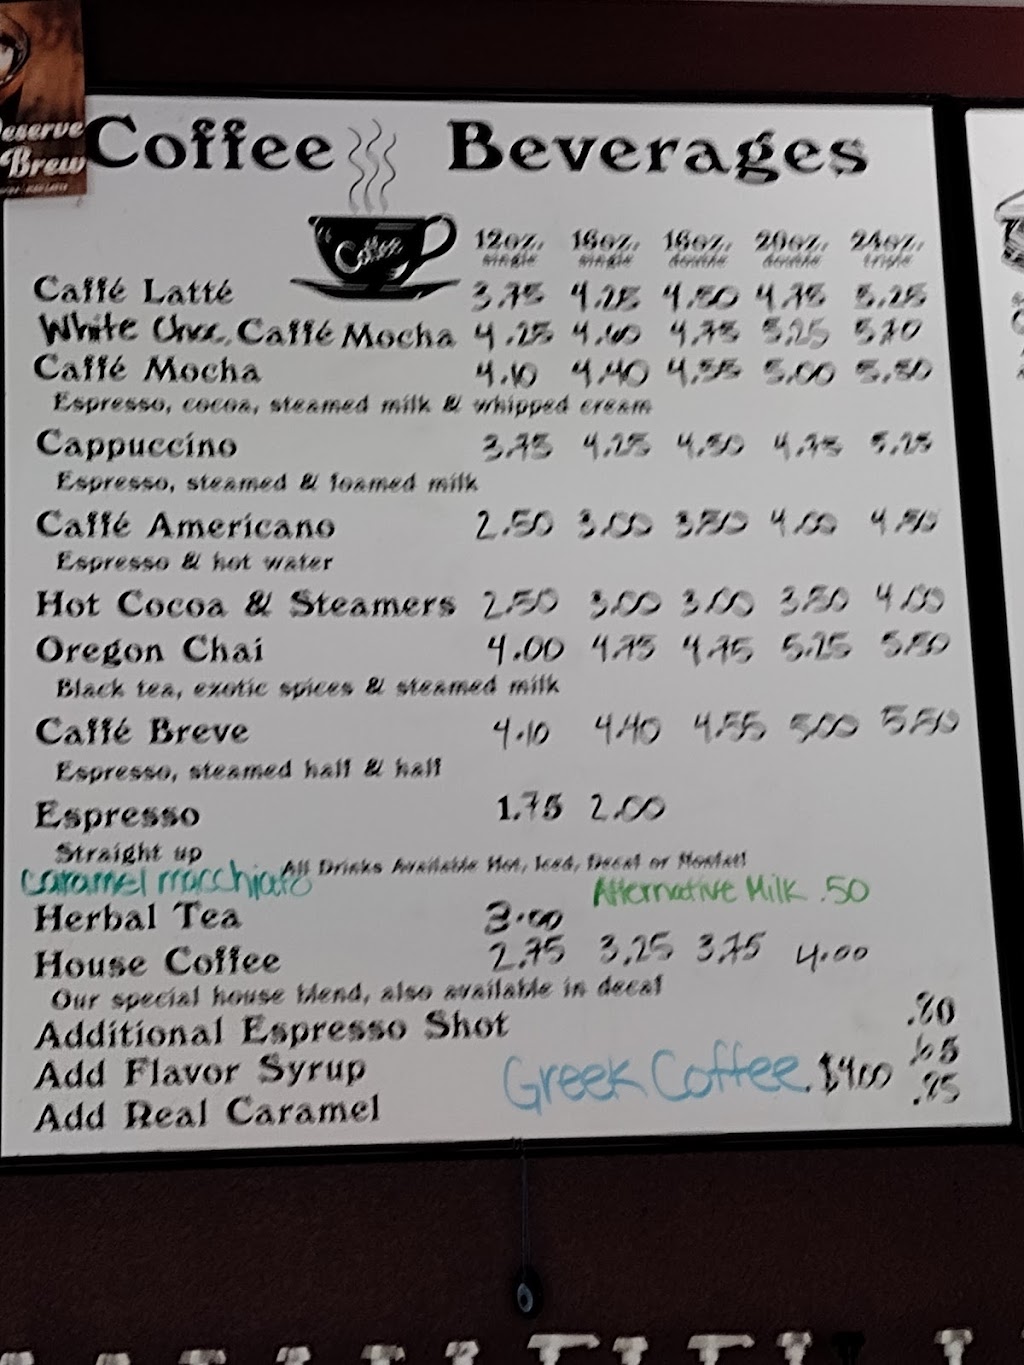 eserve
Brew
Coffee Beverages
Coffee
12oz. 16oz. 16oz. 20oz. 24oz.
single single double double triple
Caffé Latté 3.75 4.25 4.50 4.75 5.25
White Choc. Caffé Mocha 4.25 4.60 4.75 5.25 5.70
Caffé Mocha 4.10 4.40 4.55 5.00 5.50
Espresso, cocoa, steamed milk & whipped cream
Cappuccino 3.75 4.25 4.50 4.75 5.25
Espresso, steamed & foamed milk
Caffé Americano 2.50 3.00 3.50 4.00 4.50
Espresso & hot water
Hot Cocoa & Steamers 2.50 3.00 3.00 3.50 4.00
Oregon Chai 4.00 4.75 4.75 5.25 5.50
Black tea, exotic spices & steamed milk
Caffé Breve 4.10 4.40 4.55 5.00 5.50
Espresso, steamed half & half
Espresso 1.75 2.00
Straight up
All Drinks Available Hot, Iced, Decaf or Nonfat!
caramel macchiato
Alternative Milk .50
Herbal Tea 3.00
House Coffee 2.75 3.25 3.75 4.00
Our special house blend, also available in decaf
Additional Espresso Shot .80
Add Flavor Syrup .65
Greek Coffee $4.00
Add Real Caramel